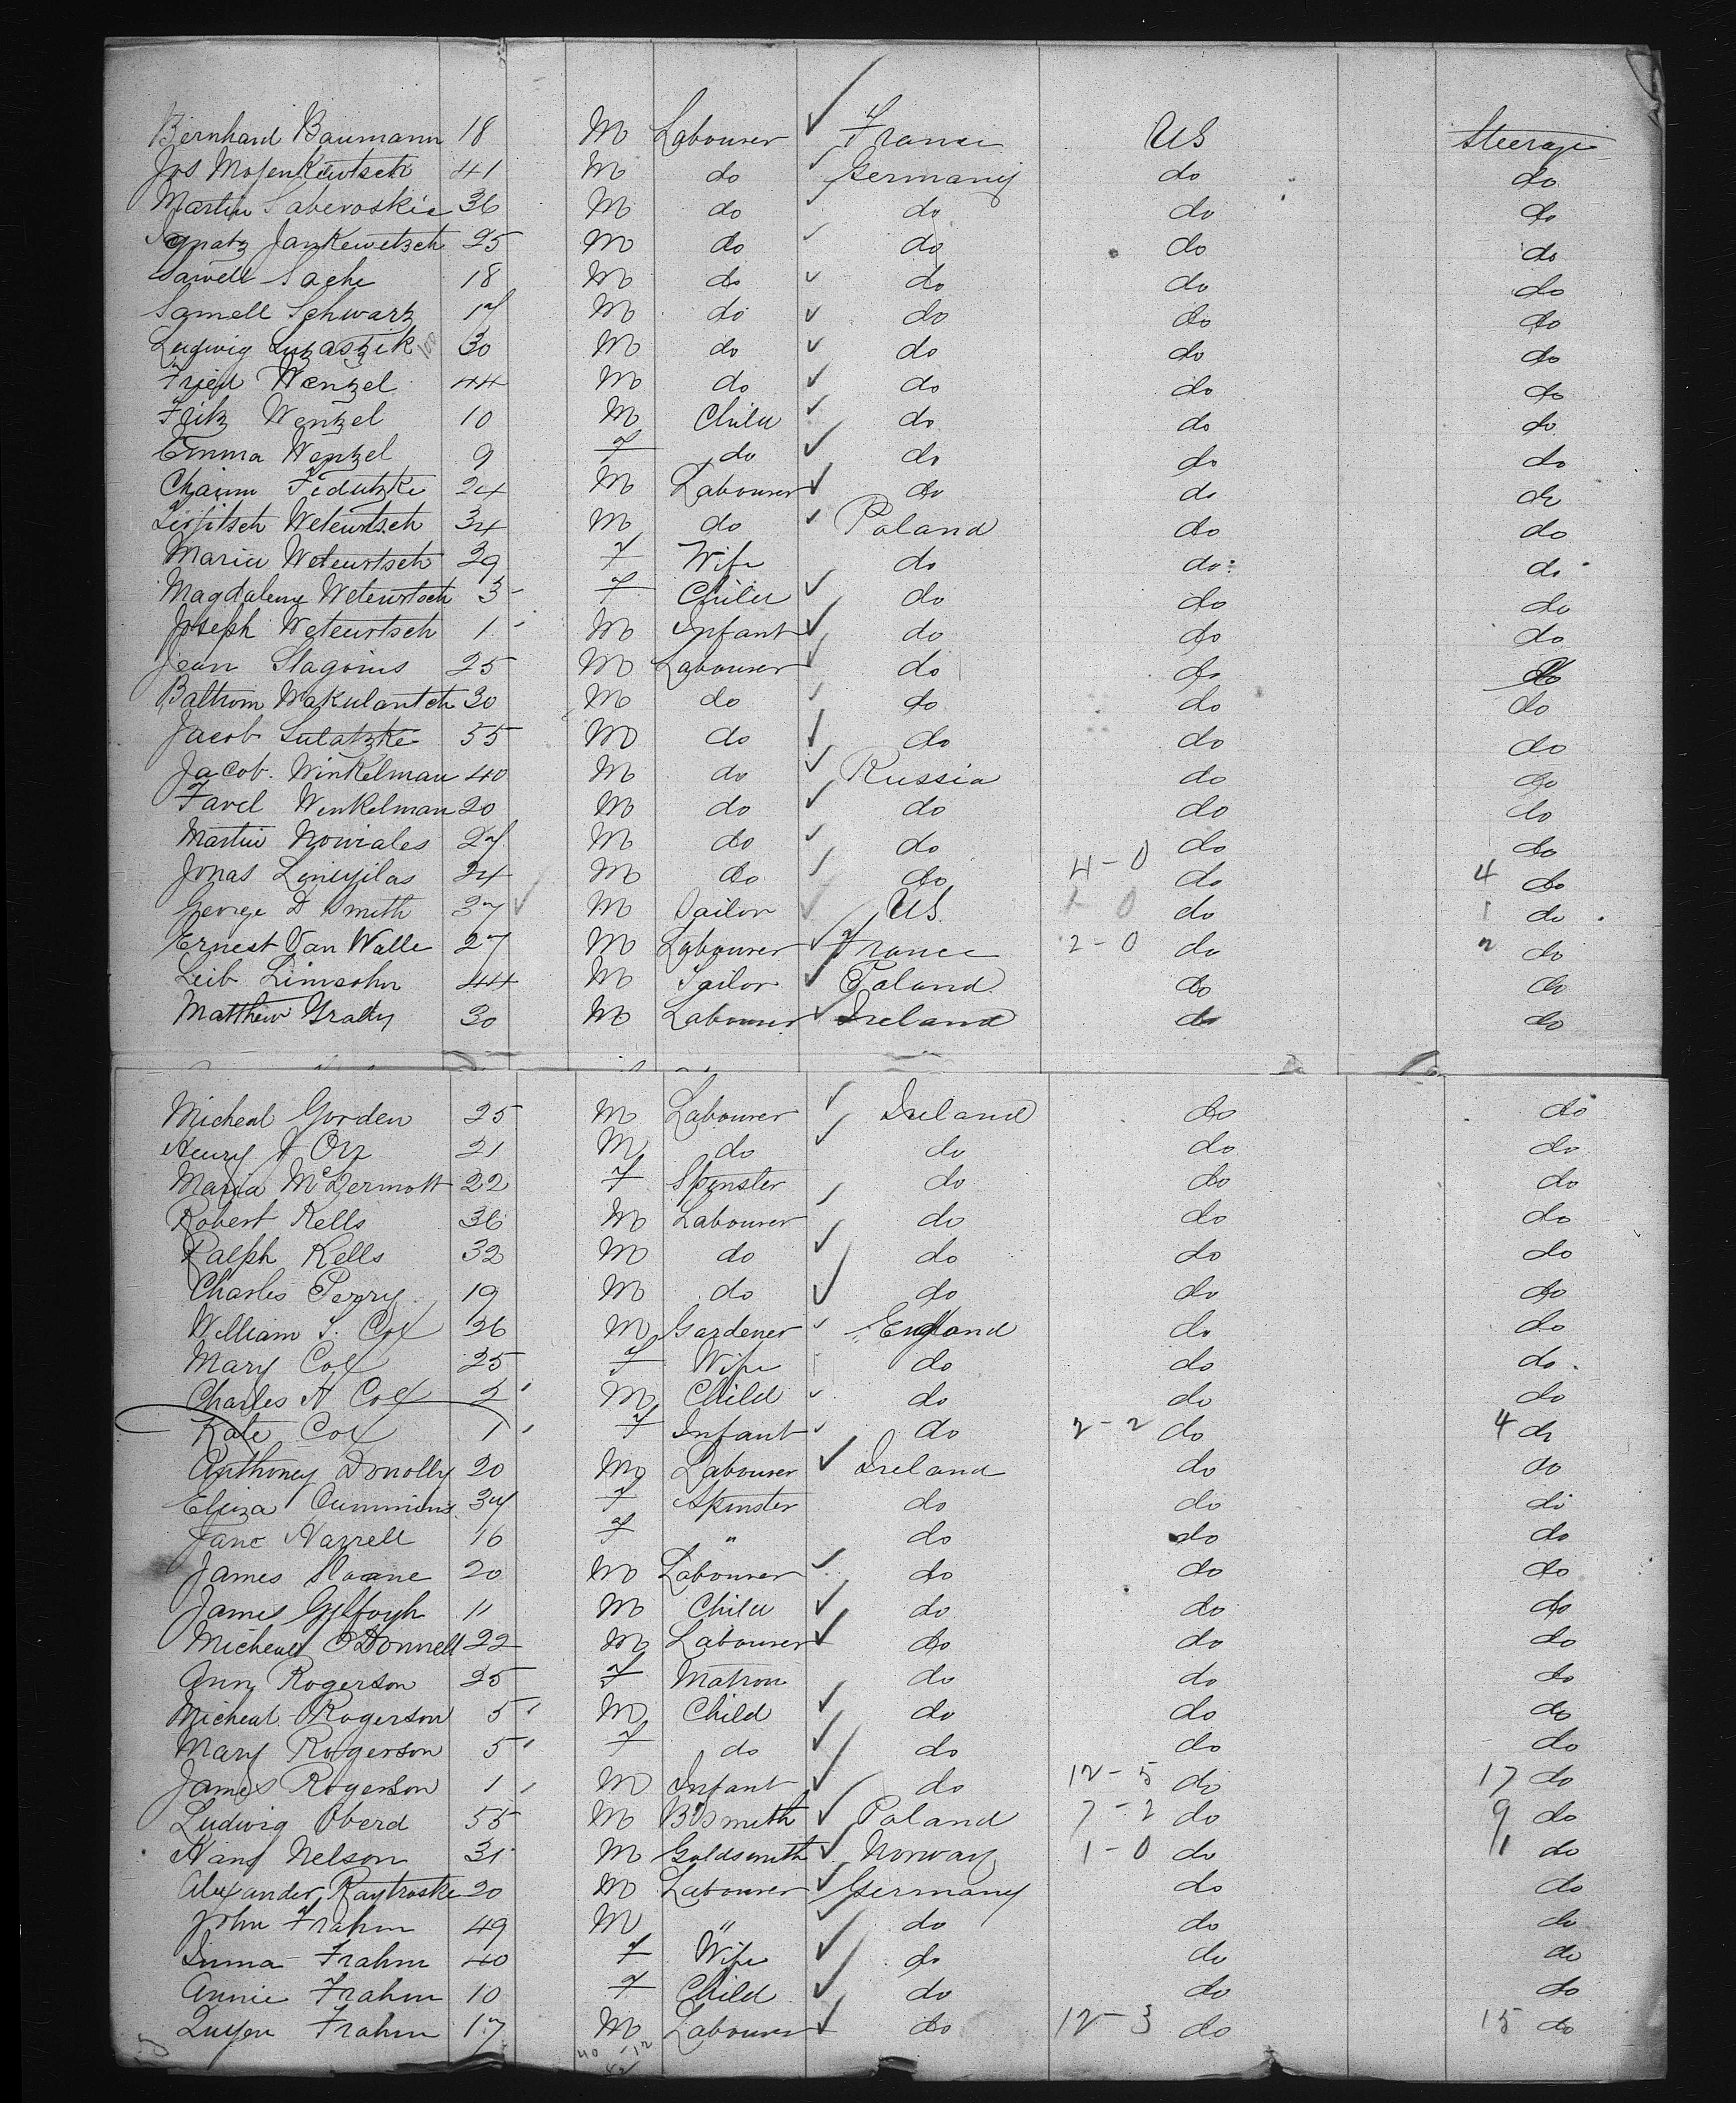 Bernhard Baumann 18 M Labourer France US Steerage
Jos Mosenkewtsch 41 M do Germany do do
Martin Saberoskie 36 M do do do do
Ignatz Jankewetzch 25 M do do do do
Sawell Sache 18 M do do do do
Samell Schwarz 17 M do do do do
Ludwig Luzaszik 100 30 M do do do do
Fried Wenzel 44 M do do do do
Fritz Wenzel 10 M Child do do do
Emma Wenzel 9 F do do do do
Chaim Fidutzke 24 M Labourer do do do
Weteurtsch 34 M do Poland do do
Maria Weteurtsch 39 F Wife do do do
Magdalene Weteurtsch 3 F Child do do do
Joseph Weteurtsch 1 M Infant do do do
Jean Slagonis 25 M Labourer do do do
Baltrom Makulantch 30 M do do do do
Jacob Sulatzke 55 M do do do do
Jacob Winkelman 40 M do Russia do do
Favel Winkelman 20 M do do do do
Martin Nowiales 27 M do do do do
Jonas 24 M do do 4-0 do 4 do
George D Smith 37 M Sailor US 1 0 do 1 do
Ernest Van Walle 27 M Labourer France 2-0 do 2 do
Leib Limsohn 44 M Tailor Poland do do
Matthew Grady 30 M Labourer Ireland do do
Micheal Gorden 25 M Labourer Ireland do do
Henry J Orr 21 M do do do do
Maria McDermott 22 F Spinster do do do
Robert Kells 36 M Labourer do do do
Ralph Kells 32 M do do do do
Charles Perry 19 M do do do do
William S. Cox 26 M Gardener England do do
Mary Cox 25 F Wife do do do
Charles H Cox 2 M Child do do do
Kate Cox 1 F Infant do 2-2 do 4 do
Anthoney Donolly 20 M Labourer Ireland do do
Eliza Cummins 34 F Spinster do do do
Jane Harrell 16 F " do do do
James Sloane 20 M Labourer do do do
James Gilfoyh 11 M Child do do do
Micheal O'Donnell 22 M Labourer do do do
Ann Rogerson 25 F Matron do do do
Micheal Rogerson 5 M Child do do do
Mary Rogerson 5 F do do do do
James Rogerson 1 M Infant do 12-5 do 17 do
Ludwig Oberd 55 M B'Smith Poland 7-2 do 9 do
Hans Nelson 31 M Goldsmith Norway 1-0 do 1 do
Alexander Raytroske 20 M Labourer Germany do do
John Frahm 49 M " do do do
Frahm 40 F Wife do do do
Annie Frahm 10 F Child do do do
Frahm 17 M Labourer do 12-3 do 15 do
40 -12